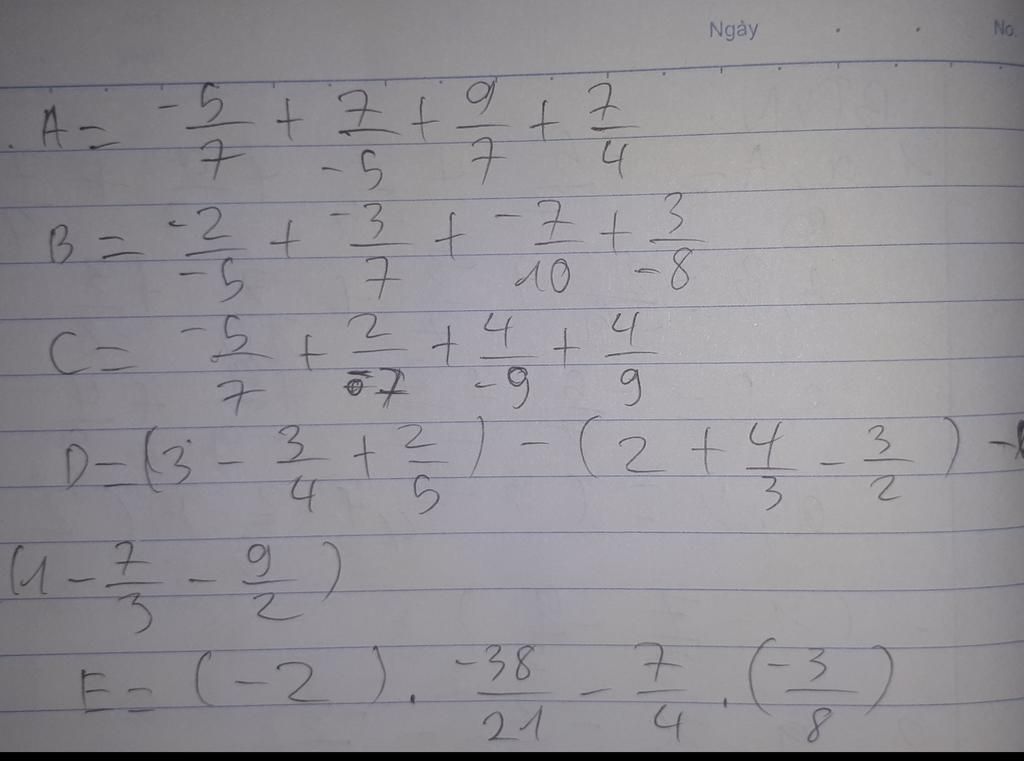 Ngày No.
A = -5/7 + 7/-5 + 9/7 + 7/4
B = -2/-5 + -3/7 + -7/10 + 3/-8
C = -5/7 + 2/-7 + 4/-9 + 4/9
D = (3 - 3/4 + 2/5) - (2 + 4/3 - 3/2) -
(1 - 7/3 - 9/2)
E = (-2) . -38/21 - 7/4 . (-3/8)